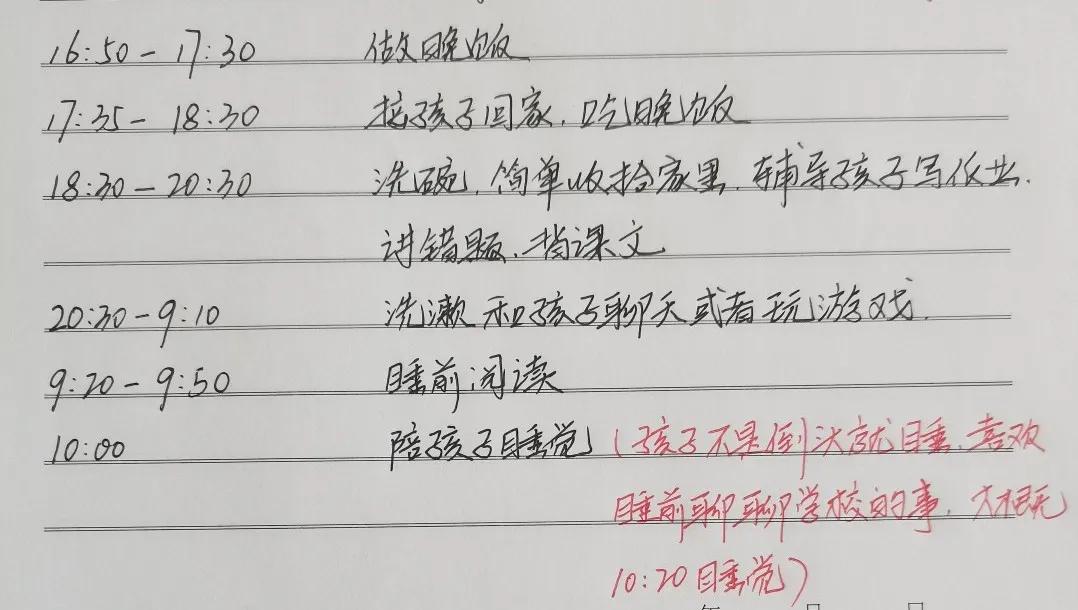 16:50-17:30 做晚饭
17:35-18:30 接孩子回家、吃晚饭
18:30-20:30 洗碗、简单收拾家里、辅导孩子写作业、
讲错题、背课文
20:30-9:10 洗漱和孩子聊天或者玩游戏.
9:20-9:50 睡前阅读
10:00 陪孩子睡觉(孩子不是倒头就睡、喜欢
睡前聊聊学校的事、大概
10:20睡觉)